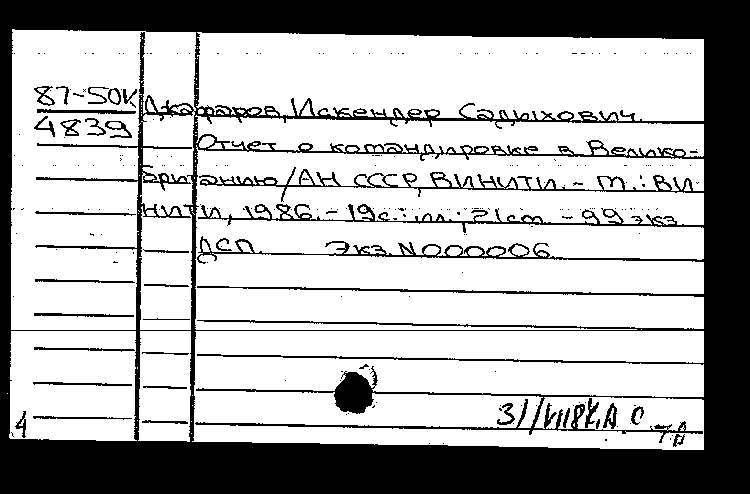 87-50К
4839
Джафаров, Искендер Садыхович.
Отчет о командировке в Велико-
британию/АН СССР, ВИНИТИ. - М.: ВИ-
НИТИ, 1986. - 19с.: ил.; 21см. - 99 экз.
ДСП. Экз. N000006
4